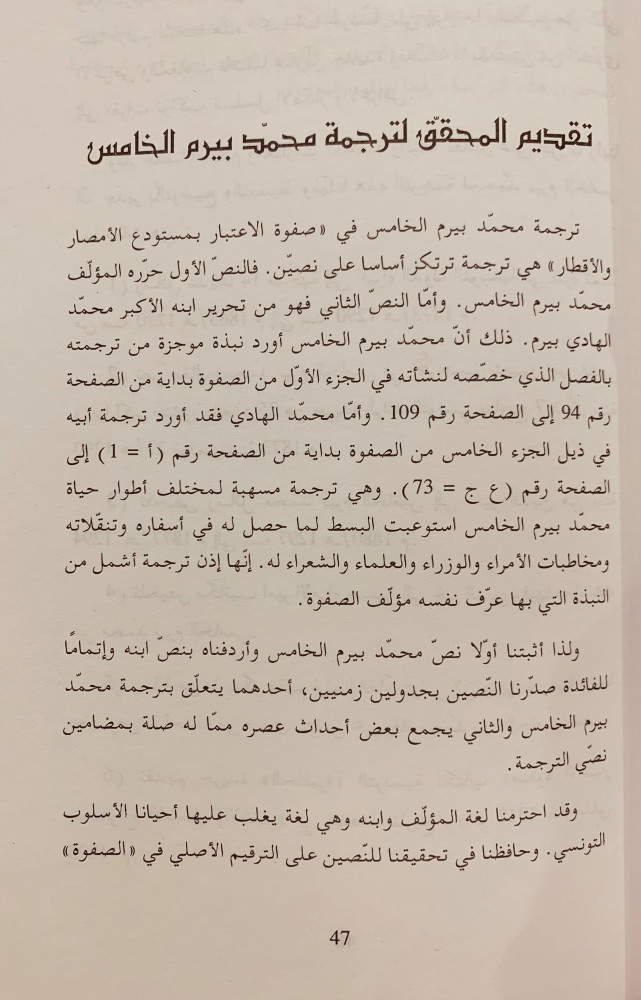 تقديم المحقّق لترجمة محمّد بيرم الخامس
ترجمة محمّد بيرم الخامس في «صفوة الاعتبار بمستودع الأمصار
والأقطار» هي ترجمة ترتكز أساسا على نصيّن. فالنصّ الأول حرّره المؤلّف
محمّد بيرم الخامس. وأمّا النصّ الثاني فهو من تحرير ابنه الأكبر محمّد
الهادي بيرم. ذلك أنّ محمّد بيرم الخامس أورد نبذة موجزة من ترجمته
بالفصل الذي خصّصه لنشأته في الجزء الأوّل من الصفوة بداية من الصفحة
رقم 94 إلى الصفحة رقم 109. وأمّا محمّد الهادي فقد أورد ترجمة أبيه
في ذيل الجزء الخامس من الصفوة بداية من الصفحة رقم (أ = 1) إلى
الصفحة رقم (ع ج = 73). وهي ترجمة مسهبة لمختلف أطوار حياة
محمّد بيرم الخامس استوعبت البسط لما حصل له في أسفاره وتنقّلاته
ومخاطبات الأمراء والوزراء والعلماء والشعراء له. إنّها إذن ترجمة أشمل من
النبذة التي بها عرّف نفسه مؤلّف الصفوة.
ولذا أثبتنا أوّلا نصّ محمّد بيرم الخامس وأردفناه بنصّ ابنه وإتمامًا
للفائدة صدّرنا النّصين بجدولين زمنيين، أحدهما يتعلّق بترجمة محمّد
بيرم الخامس والثاني يجمع بعض أحداث عصره ممّا له صلة بمضامين
نصّي الترجمة.
وقد احترمنا لغة المؤلّف وابنه وهي لغة يغلب عليها أحيانا الأسلوب
التونسي. وحافظنا في تحقيقنا للنّصين على الترقيم الأصلي في «الصفوة»
47